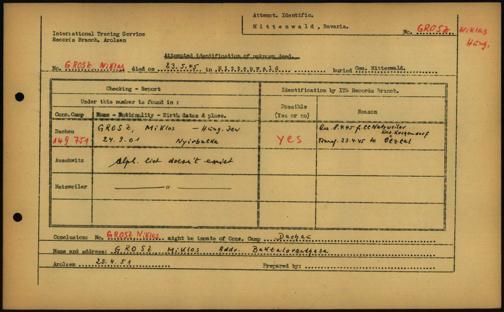 Attempt. Identific.
Mittenwald, Bavaria.
No. GROSZ Niklos
Hung.
International Tracing Service
Records Branch, Arolsen
Attempted identification of unknown dead.
No. GROSZ Niklos died on 23.5.45 in buried Cem. Mittenwald.
Checking - Report
Identification by ITS Records Branch.
Under this number is found in:
Possible
(Yes or no)
Reason
Conc.Camp
Name - Nationality - Birth dates & place.
Dachau
149 751
GROSZ, Miklos - Hung. Jew
24.9.01 Nyirbatka
yes
8.4.45 f. CC Natzweiler
Transf. 23.4.45 to
Auschwitz
Alph. list doesn't exist
Natzweiler
— " —
Conclusion: No. GROSZ Niklos might be inmate of Conc. Camp Dachau
Name and address: GROSZ Miklos Addr.
Arolsen 25.4.51 Prepared by: